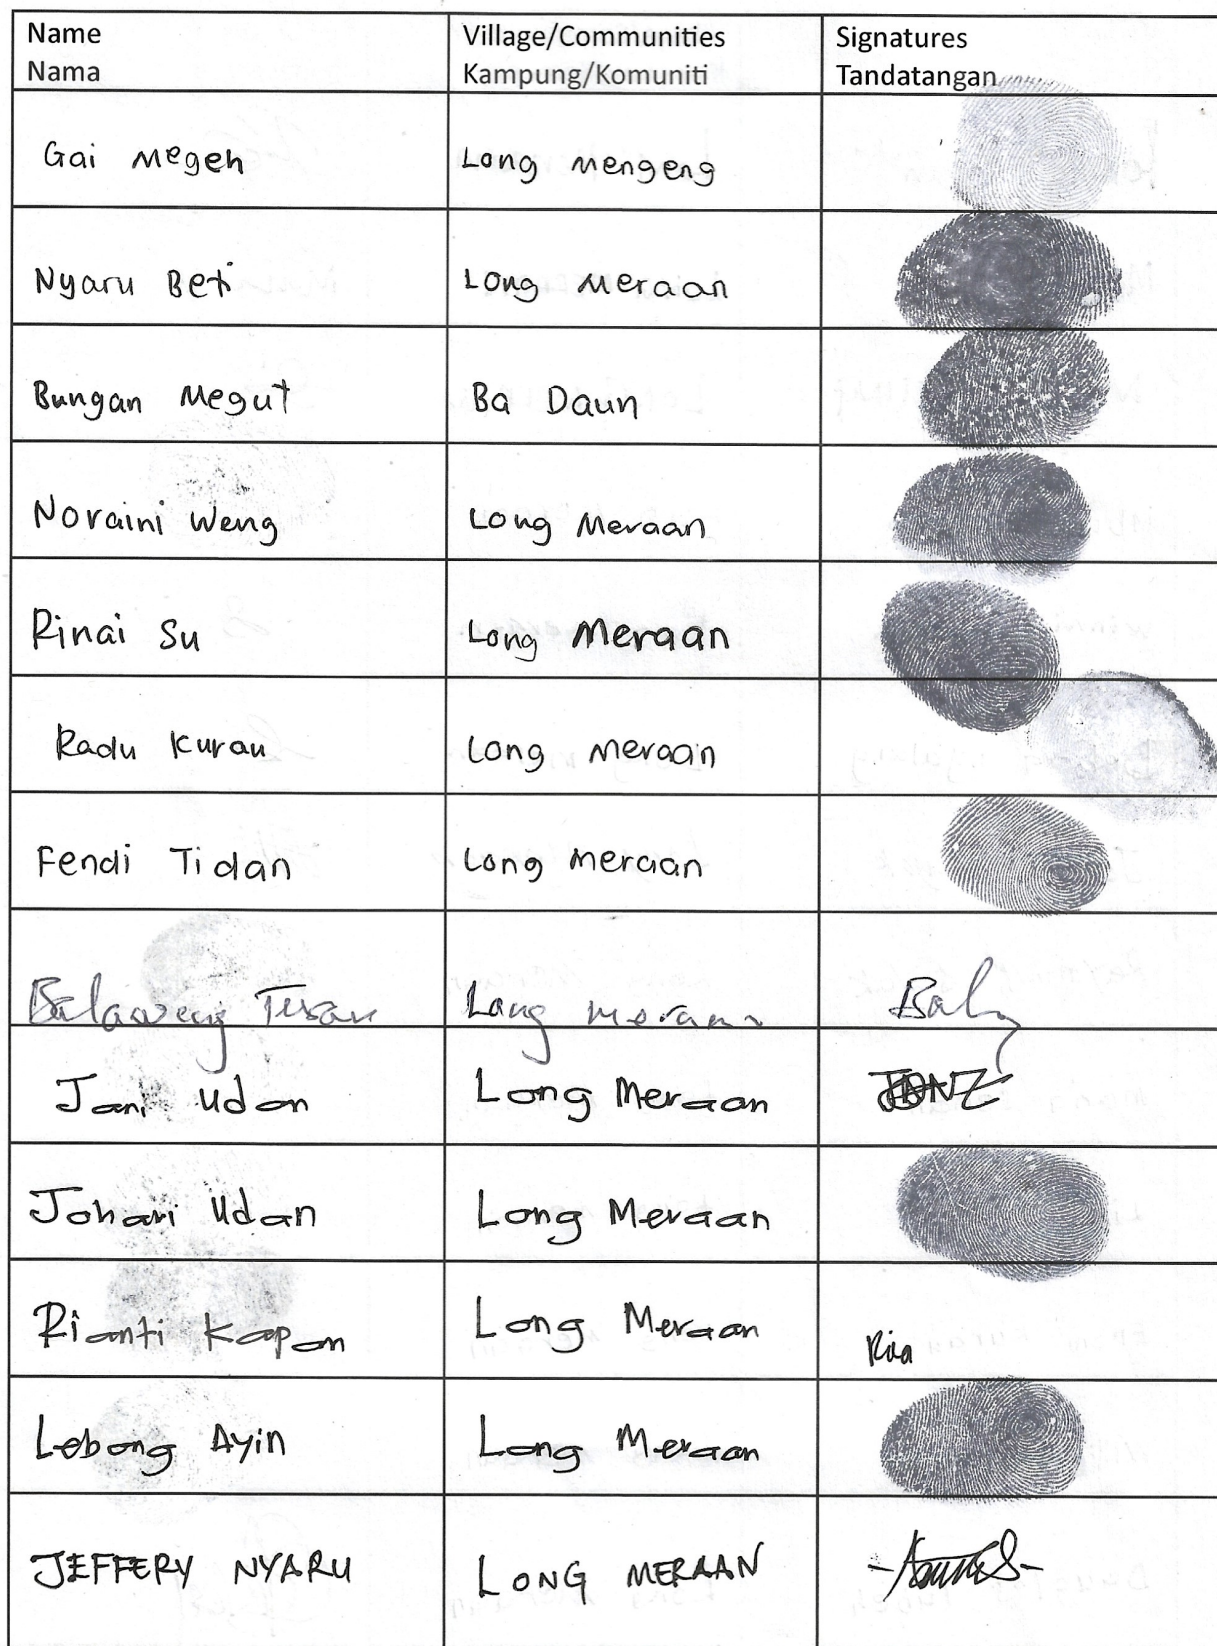 Name Village/Communities Signatures
Nama Kampung/Komuniti Tandatangan
Gai Megeh Long Mengeng
Nyaru Beti Long Meraan
Bungan Megut Ba Daun
Noraini Weng Long Meraan
Rinai Su Long Meraan
Radu Kurau Long Meraan
Fendi Tidan Long Meraan
Balaweng Tusau Long meraan
Jani Udan Long Meraan
Johari Udan Long Meraan
Rianti Kapan Long Meraan Ria
Lebong Ayin Long Meraan
JEFFERY NYARU LONG MERAAN